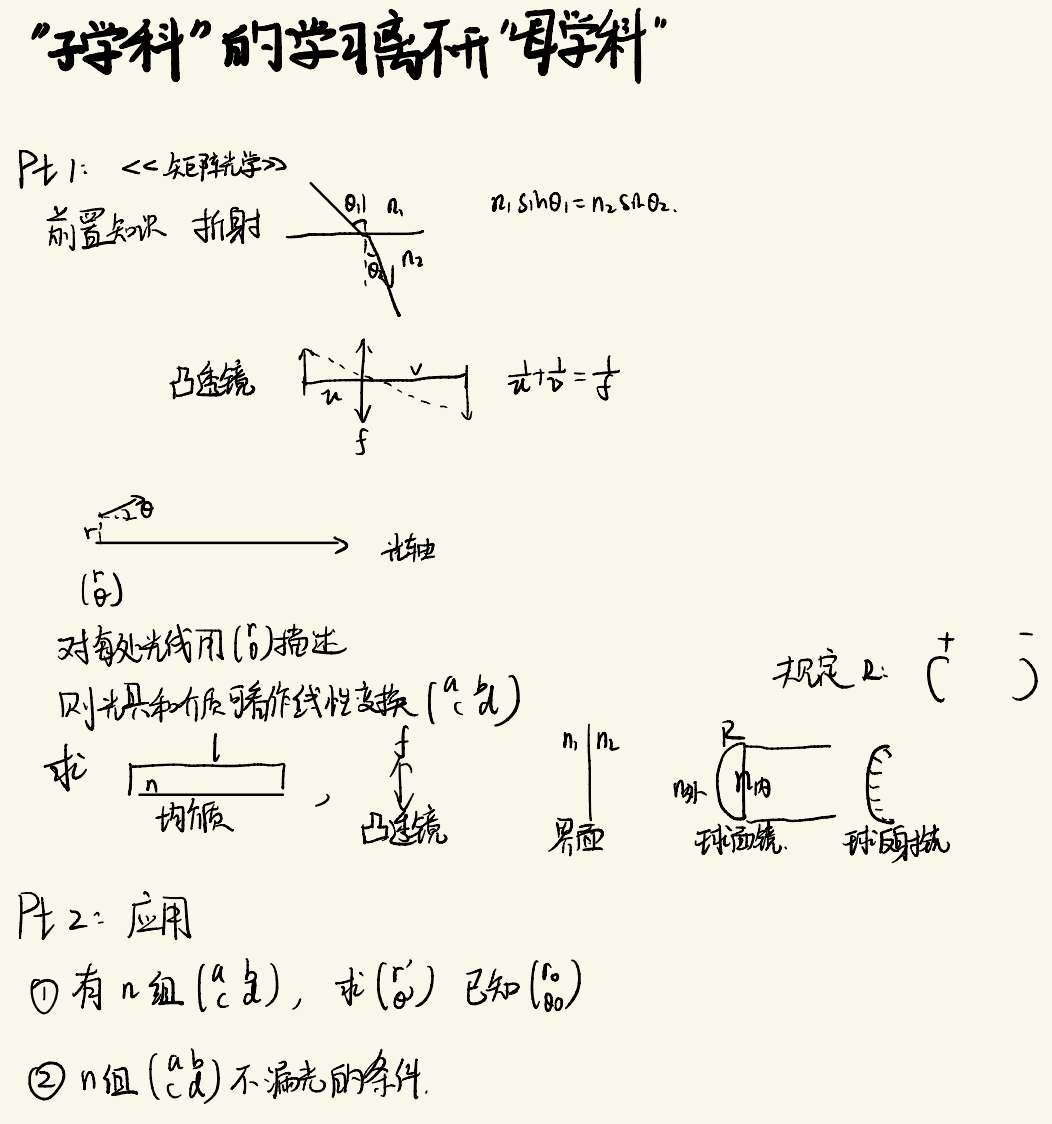 "子学科"的学习离不开"母学科"
Pt 1: <<矩阵光学>>
前置知识 折射 θ₁ n₁ θ₂ n₂ n₁ sinθ₁ = n₂ sinθ₂.
凸透镜 u v f 1/u + 1/v = 1/f
r θ 光轴
(r θ)
对每处光线用(r θ)描述
则光具和介质可看作线性变换(a b c d)
规定R: + ( - )
求 l n 均介质 , f 凸透镜 n₁ n₂ 界面 R n外 n内 球面镜. 球反射镜
Pt 2: 应用
① 有 n 组 (a b c d), 求(r' θ') 已知(r₀ θ₀)
② n组(a b c d)不漏光的条件.